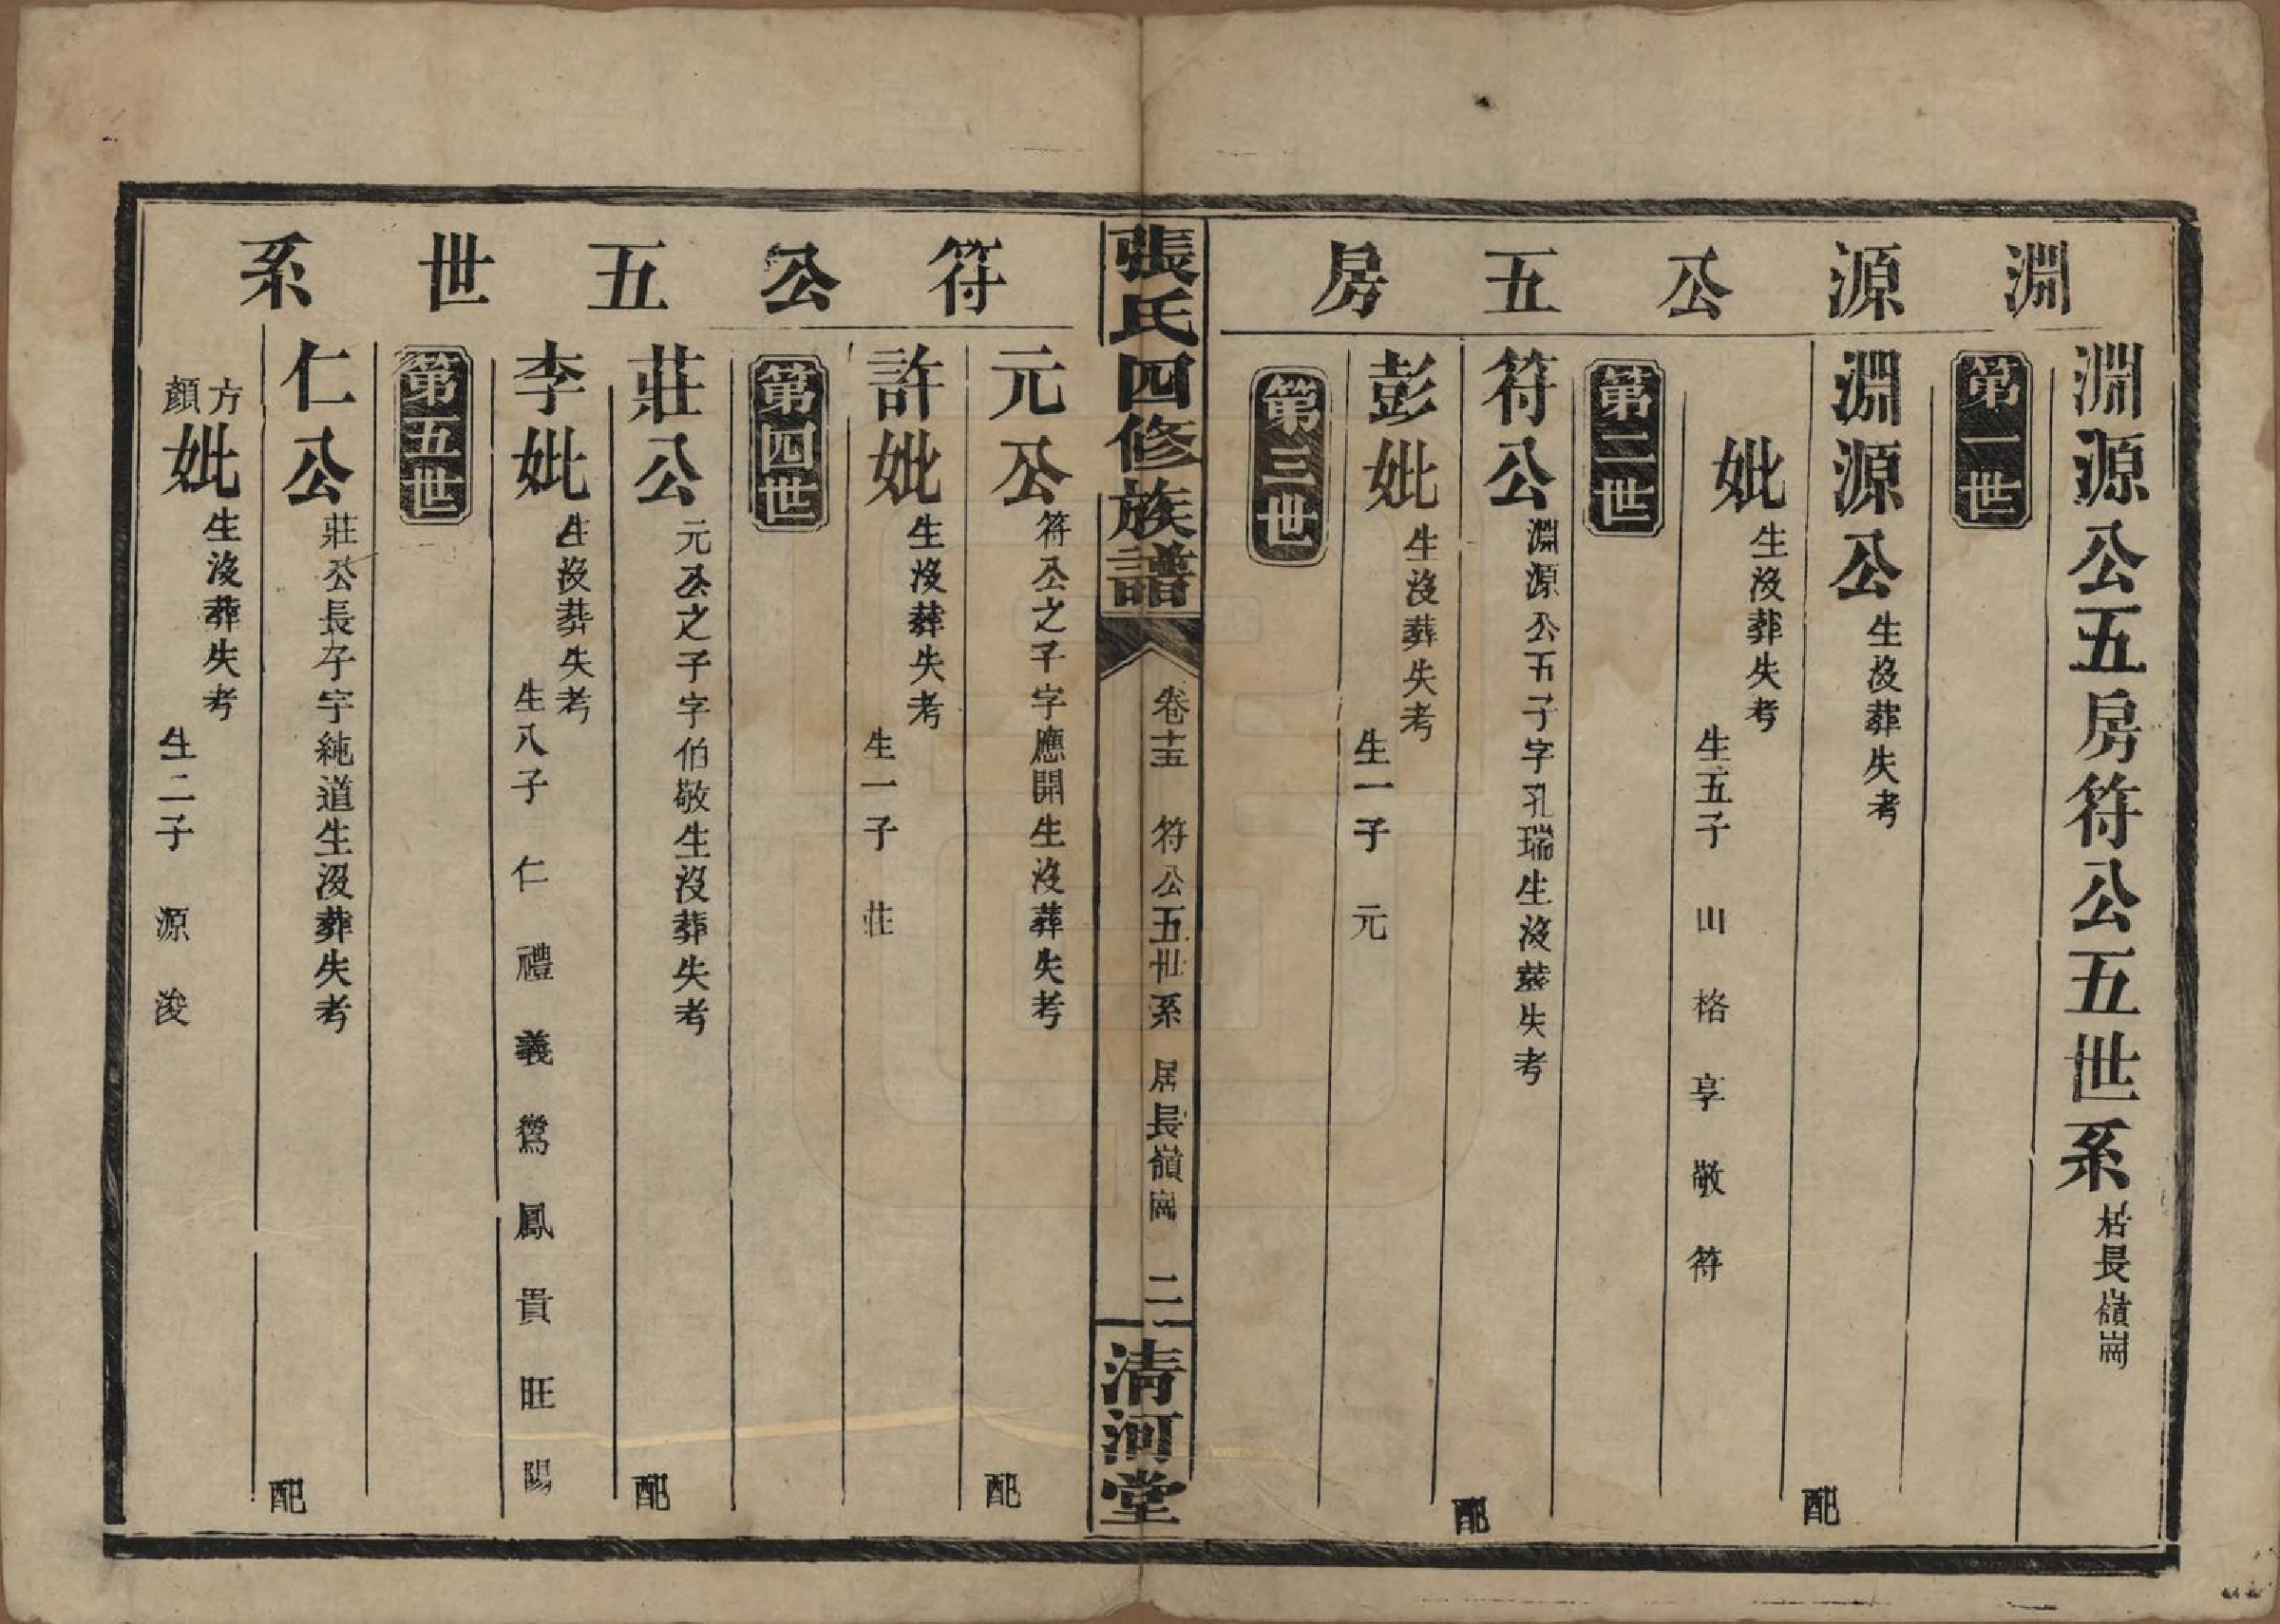 淵源公五房
淵源公五房符公五世系居長嶺崗
第一世
淵源公生沒葬失考 配
妣生沒葬失考生五子 山 格 享 敬 符
第二世
符公淵源公五子字孔瑞生沒葬失考 配
彭妣生沒葬失考生一子 元
第三世
張氏四修族譜 卷十五 符公五世系 居長嶺崗 二 清河堂
符公五世系
元公符公之子字應開生沒葬失考 配
許妣生沒葬失考生一子 莊
第四世
莊公元公之子字伯敬生沒葬失考 配
李妣生沒葬失考生八子 仁 禮 義 鶯 鳳 貴 旺 陽
第五世
仁公莊公長子字純道生沒葬失考 配
方顏妣生沒葬失考生二子 源 浚